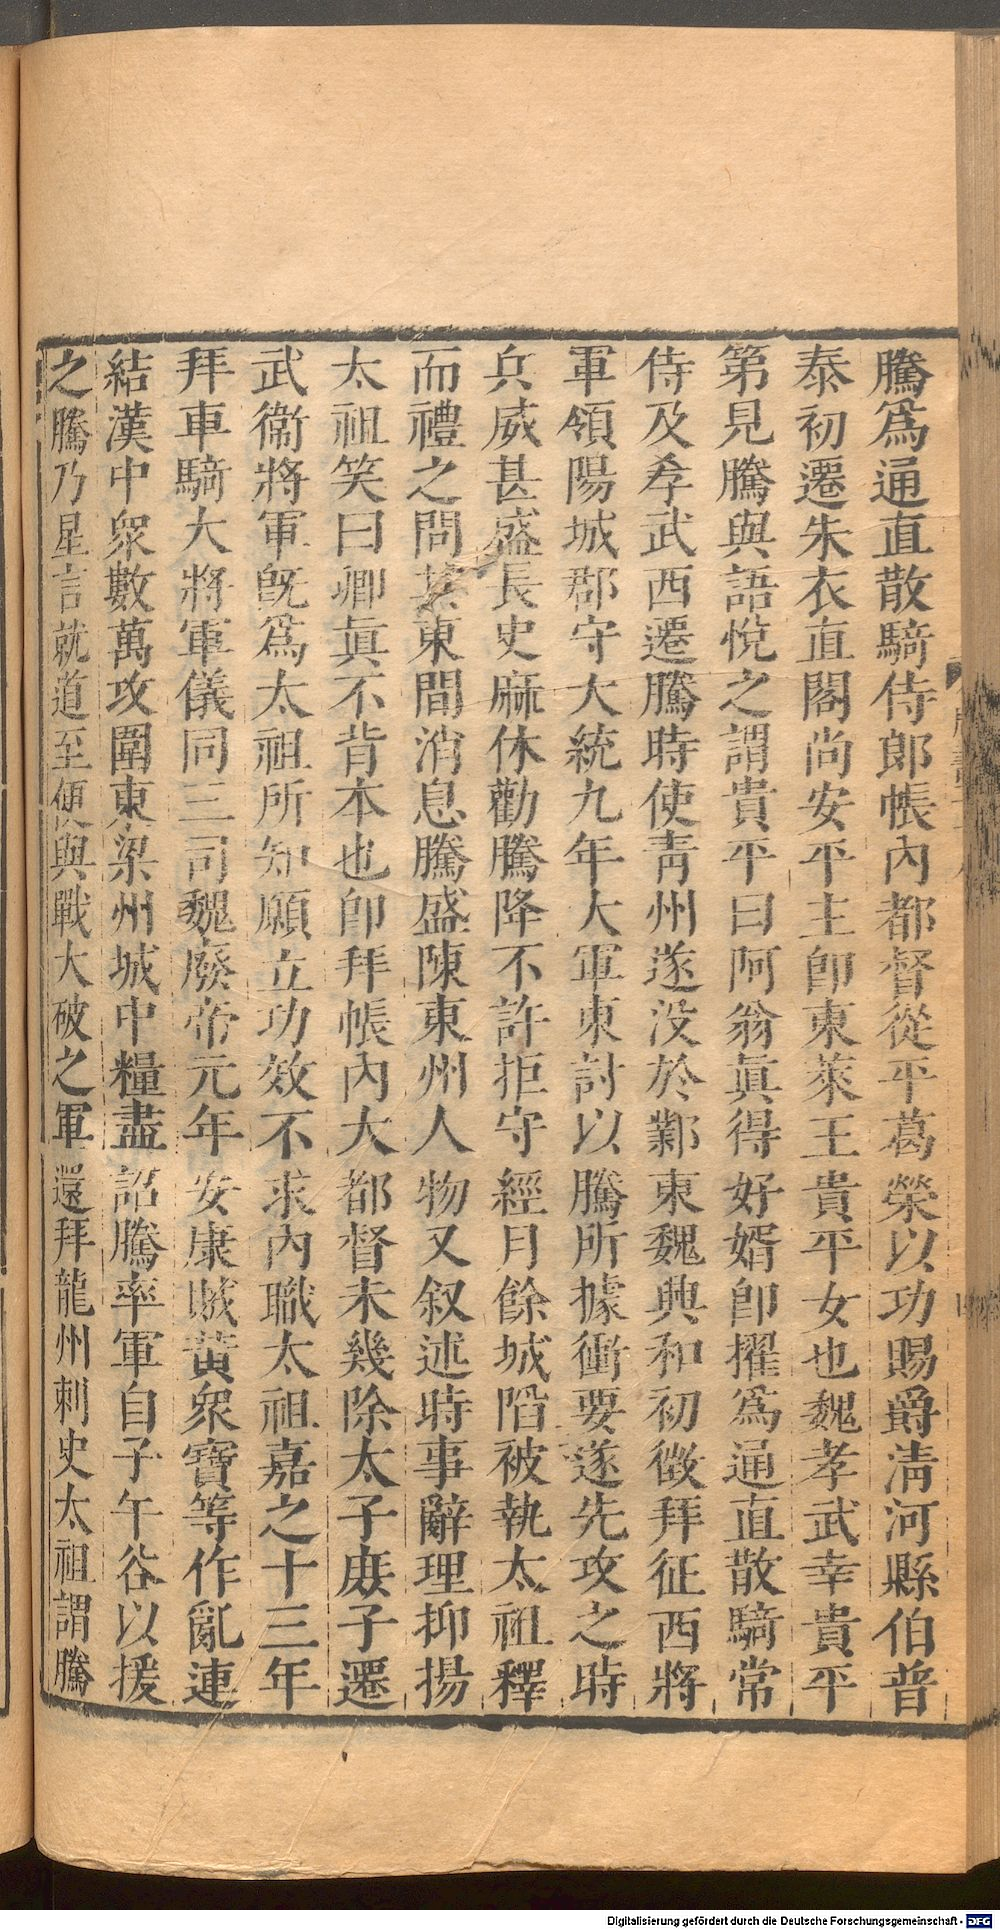 騰爲通直散騎侍郎帳內都督從平葛榮以功賜爵淸河縣伯普
泰初遷朱衣直閣尚安平主卽東萊王貴平女也魏孝武幸貴平
第見騰與語悅之謂貴平曰阿翁眞得好婿卽擢爲通直散騎常
侍及孝武西遷騰時使靑州遂没於鄴東魏興和初徵拜征西將
軍領陽城郡守大統九年大軍東討以騰所據衝要遂先攻之時
兵威甚盛長史麻休勸騰降不許拒守經月餘城陷被執太祖釋
而禮之問其東間消息騰盛陳東州人物又叙述時事辭理抑揚
太祖笑曰卿眞不背本也卽拜帳內大都督未幾除太子庶子遷
武衞將軍旣爲太祖所知願立功效不求內職太祖嘉之十三年
拜車騎大將軍儀同三司魏廢帝元年安康賊黃衆寶等作亂連
結漢中衆數萬攻圍東梁州城中糧盡詔騰率軍自子午谷以援
之騰乃星言就道至便與戰大破之軍還拜龍州刺史太祖謂騰
Digitalisierung gefördert durch die Deutsche Forschungsgemeinschaft - DFG